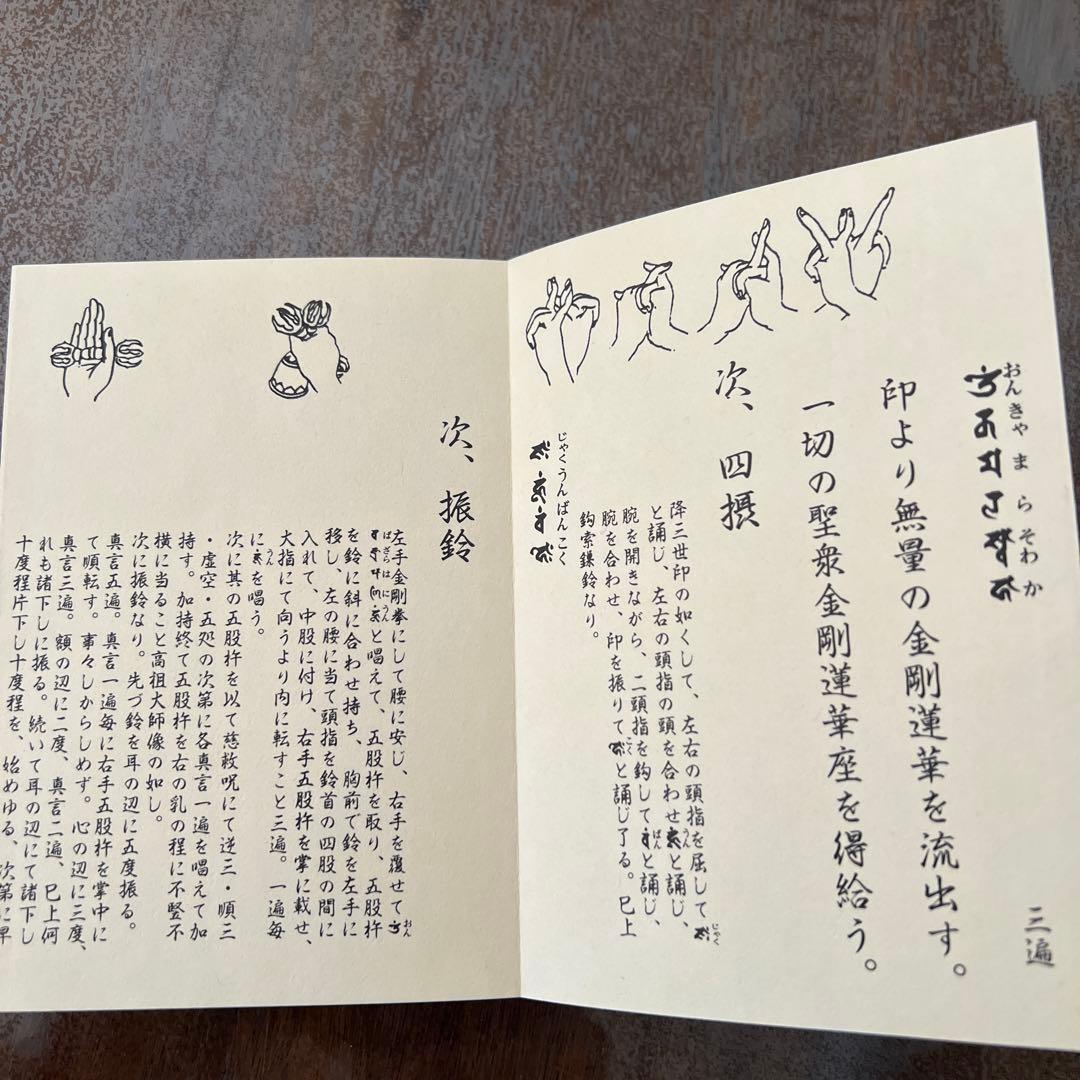 おんきゃまらそわか
三遍
印より無量の金剛蓮華を流出す。
一切の聖衆金剛蓮華座を得給う。
次、四摂
降三世印の如くして、左右の頭指を屈して
じゃく
と誦じ、左右の頭指の頭を合わせ
うん
と誦じ、
腕を開きながら、二頭指を鉤して
ばん
と誦じ、
腕を合わせ、印を振りて
こく
と誦じ了る。已上
鉤索鎌鈴なり。
じゃくうんばんこく
次、振鈴
左手金剛拳にして腰に安じ、右手を覆せて
おん
ばざらはにうん
と唱えて、五股杵を取り、五股杵
を鈴に斜に合わせ持ち、胸前で鈴を左手に
移し、左の腰に当て頭指を鈴首の四股の間に
入れて、中股に付け、右手五股杵を掌に載せ、
大指にて向うより内に転すこと三遍。一遍毎
に
うん
を唱う。
次に其の五股杵を以て慈救呪にて逆三・順三
・虚空・五処の次第に各真言一遍を唱えて加
持す。加持終て五股杵を右の乳の程に不竪不
横に当ること高祖大師像の如し。
次に振鈴なり。先づ鈴を耳の辺に五度振る。
真言五遍。真言一遍毎に右手五股杵を掌中に
て順転す。事々しからしめず。心の辺に三度、
真言三遍。額の辺に二度、真言二遍、已上何
れも諸下しに振る。続いて耳の辺にて諸下し
十度程片下し十度程を、始めゆる、次第に早